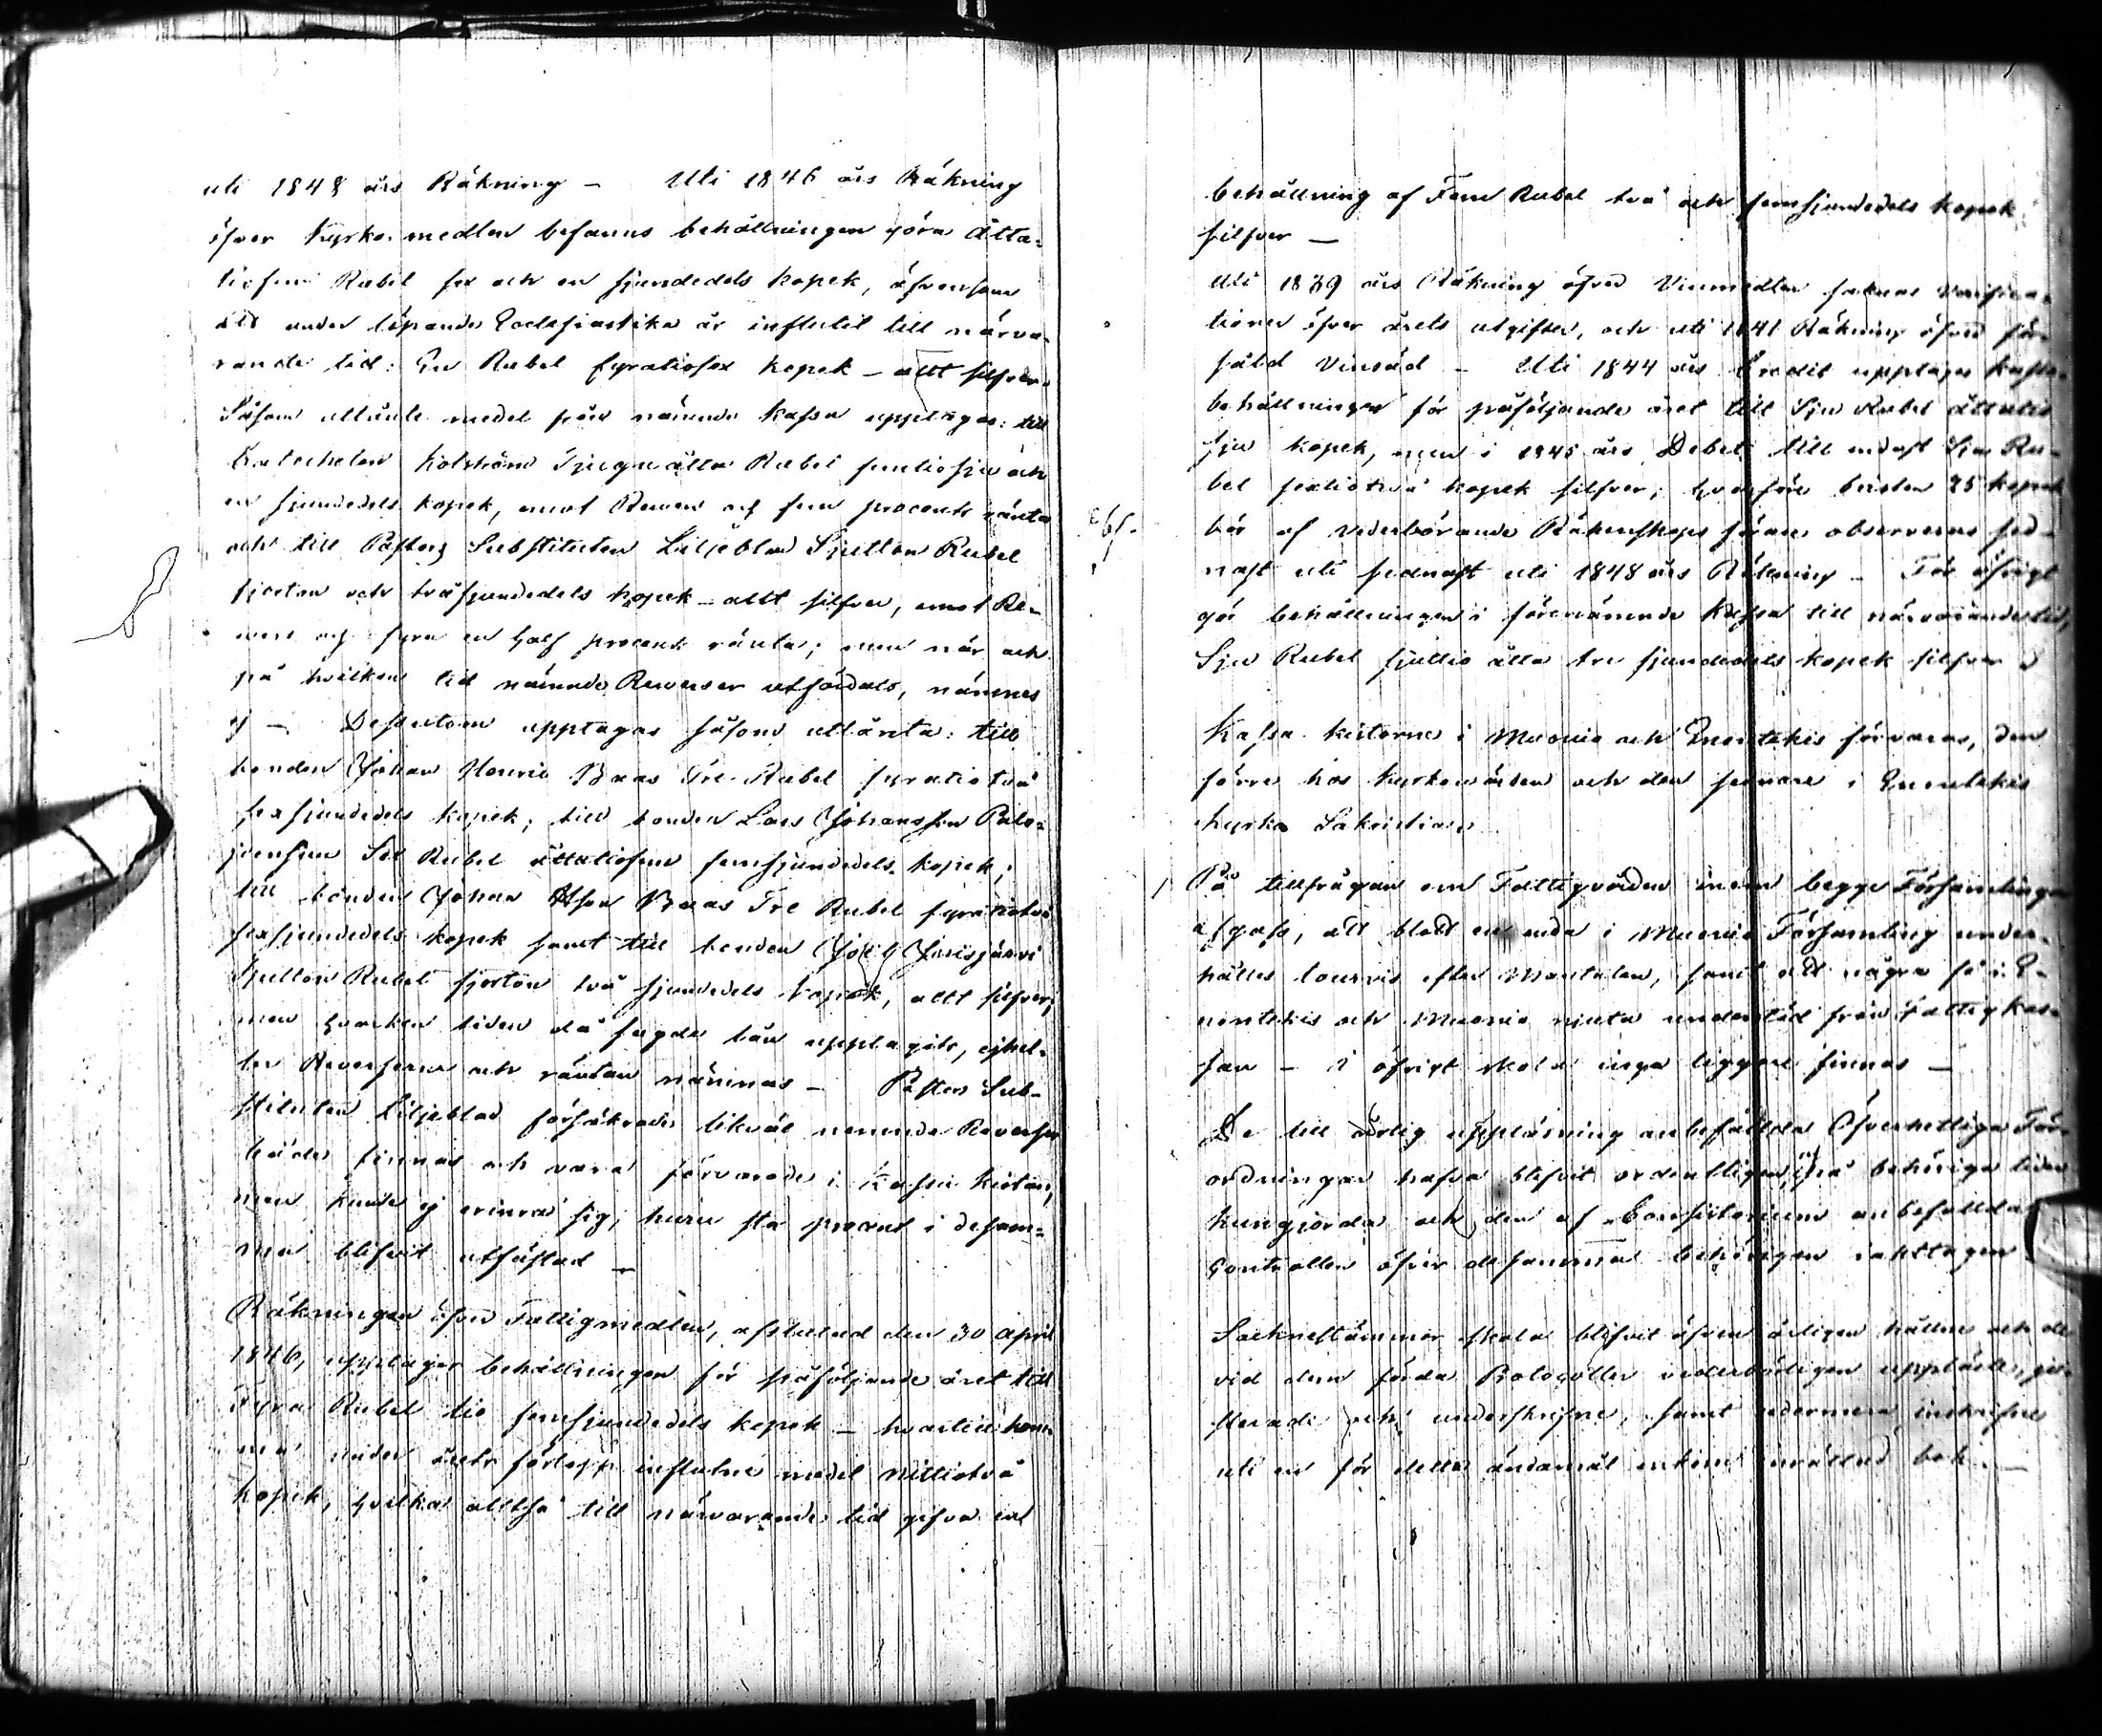 uti 1848 års Räkning – Uti 1846 års Räkning
öfver Kyrko medlen befanns behållningen göra Åtta-
tiofem Rubel sex och en sjundedels kopek, äfvensom
att under löpande Ecclesiastika år influtit till närva-
rande tid: En Rubel fyratiosex kopek – allt silfver.
Såsom utlånte medel från nämnde kassa upptages: till
Katecheten Kolström Tjuguåtta Rubel femtiosju och
en sjundedels kopek, emot Revers och fem procents ränta
och till Pastors Substituten Liljeblad Sjutton Rubel
fjorton och två sjundedels kopek – allt silfver, emot Re-
vers och fyra en half procents ränta; men när och
på hvilken tid nämnde Reverser utfärdats, nämnes
ej – Dessutom upptagas såsom utlånta: till
bonden Johan Henric Vaas Tre Rubel fyratiotvå
sexsjundedels kopek; till bonden Lars Johansson Palo-
joensuu Sex Rubel åttatiofem femsjundedels kopek;
till bonden Johan Vaas Tre Rubel fyratiotvå
sexsjundedels kopek samt till bonden
Sjutton Rubel fjorton två sjundedels kopek, allt silfver;
men hvarken tiden då sagde lån upptagits, ejhel-
ler Reverserne och räntan nämnas – Pastors Sub-
stituten Liljeblad försäkrade likväl nemnde Reverser
både finnas och vara förvarade i Kassa kistan,
men kunde ej erinra sig, huru sta procent i desam-
ma blifvit utfästad –
Räkningen öfver Fattigmedlen, afslutad den 30 April
1846, upptager behållningen för påföljande året till
Fyra Rubel tio femsjundedels kopek – hvartill kom-
ma under årets förlopp influtne medel nittiotvå
kopek, hvilka alltså till närvarande tid gifva en
behållning af Fem Rubel två och femsjundedels kopek
silfver –
Uti 1839 års Räkning öfver Vinmedlen saknas Verifica-
tioner öfver årets utgifter, och uti 1841 Räkning öfver för-
såld Vinsäd – Uti 1844 års Credit upptages kassa-
behållningen för påföljande året till Sju Rubel åttatio
sju kopek, men i 1845 års Debet till endast Sju Ru-
bel sextiotvå kopek silfver; hvarföre bristen 25 kopek
bör af vederbörande Räkenskaps förare observeras sed-
nast uti sednast uti 1848 års Räkning – För öfrigt
gör behållningen i förenämnde kassa till närvarande tid,
Sju Rubel sjuttio åtta tre sjundedels kopek silfver
Kassa kistorne i Muonio och Enontekis förvaras, den
förre hos kyrkovärden och den sednare i Enontekis
kyrka Sakristian
På tillfrågan om Fattigvården inom begge Församlingar
afgafs, att blott en enda i Muonio Församling under-
hålles tourvis efter Mantalen, samt att några få i E-
nontekis och Muonio njuta understöd från Fattigkas-
san – i öfrigt skola inga tiggare finnas –
De till årlig uppläsning anbefallda Öfverhetliga För-
ordningar hafva blifvit ordentligen på behöriga tider
kungjorda och den af Consistorium anbefallda
Controllen öfver desamma behörigen iakttagen
Sockneftämmor skola blifvit äfven årligen hållne och de
vid dem förda Protocoller vederbörligen uppläste, ju-
sterade och underskrifne, samt edermera inskrifne
uti en för detta ändamål enkom inrättad bok. –